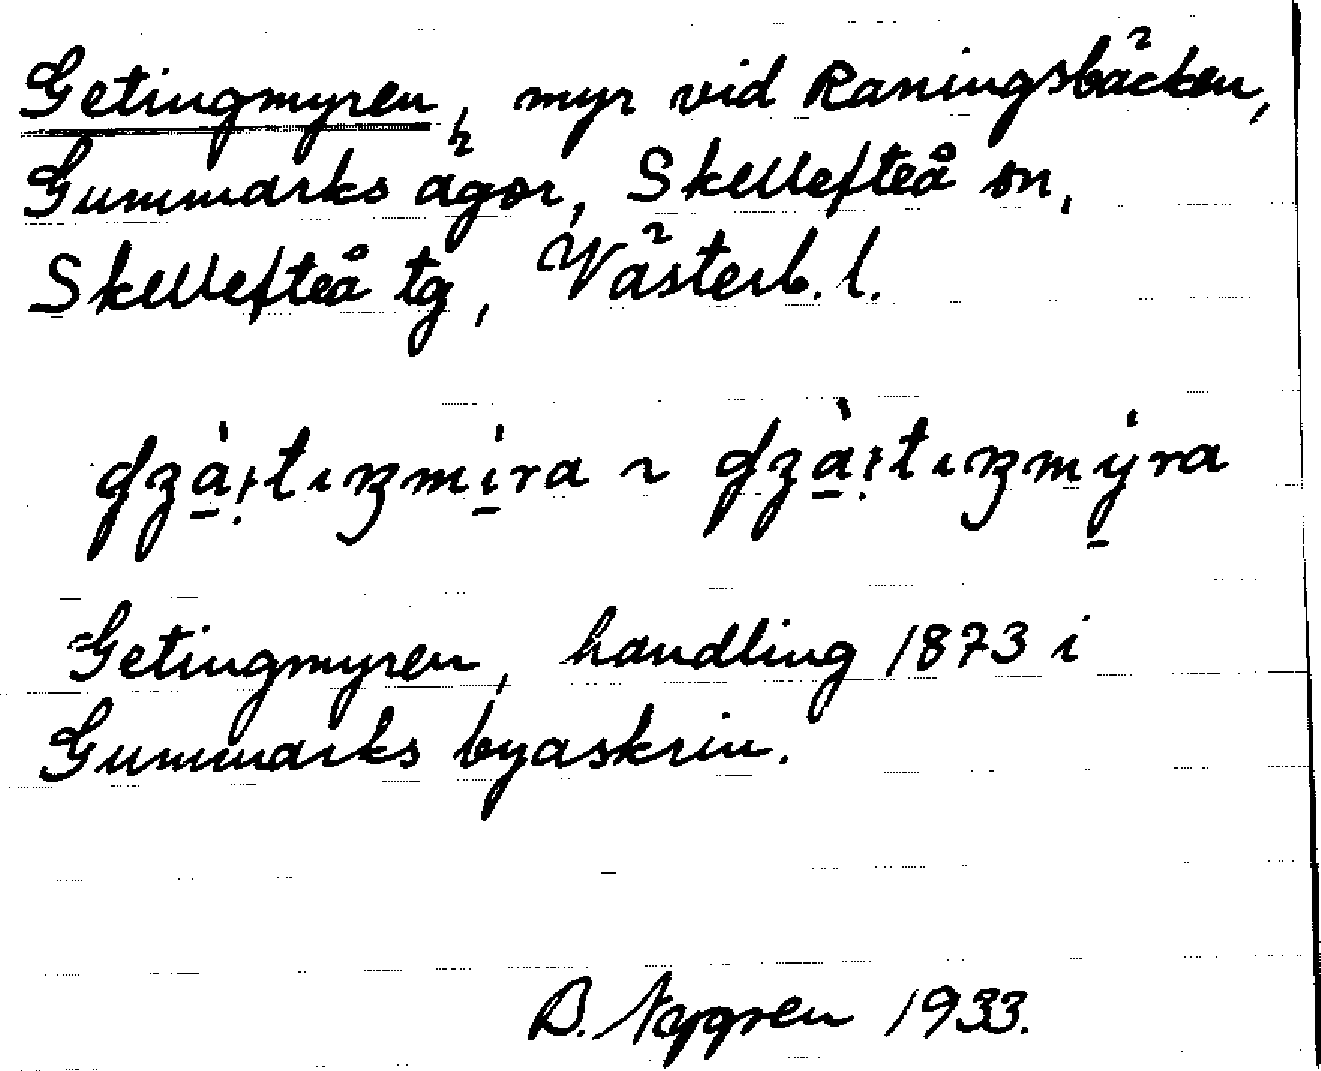 Getingmyren, myr vid Raningsbäcken,
Gummarks ägor, Skellefteå sn,
Skellefteå tg, Västerb. l.
Getingmyren, handling 1873 i
Gummarks byaskrin.
B. Nygren 1933.